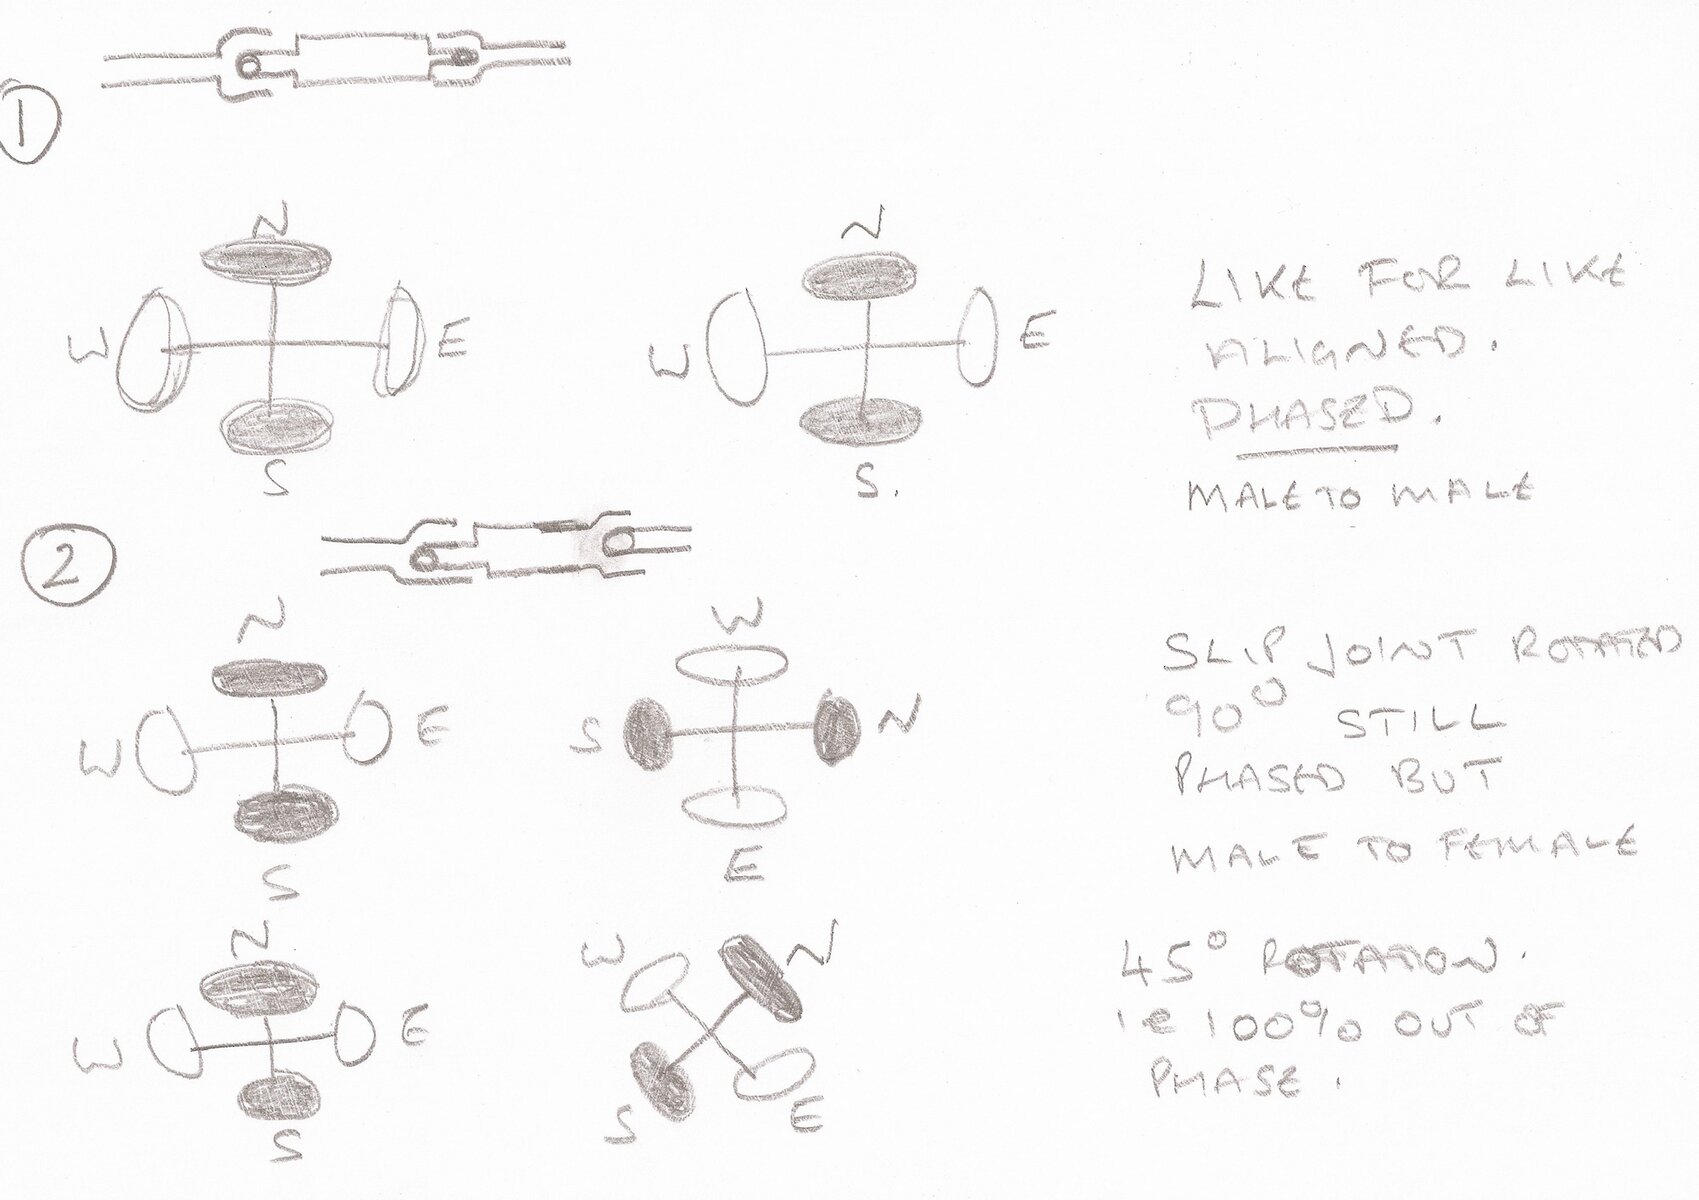 1
N N
W E W E
S S.
LIKE FOR LIKE
ALIGNED.
PHASED.
MALE TO MALE
2
N W
W E S N
S E
SLIP JOINT ROTATED
90° STILL
PHASED BUT
MALE TO FEMALE
N W N
W E
S S E
45° ROTATION.
ie 100% OUT OF
PHASE.